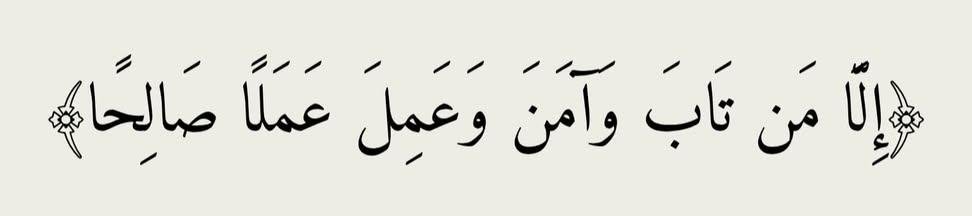 ﴿إِلَّا مَن تَابَ وَآمَنَ وَعَمِلَ عَمَلًا صَالِحًا﴾